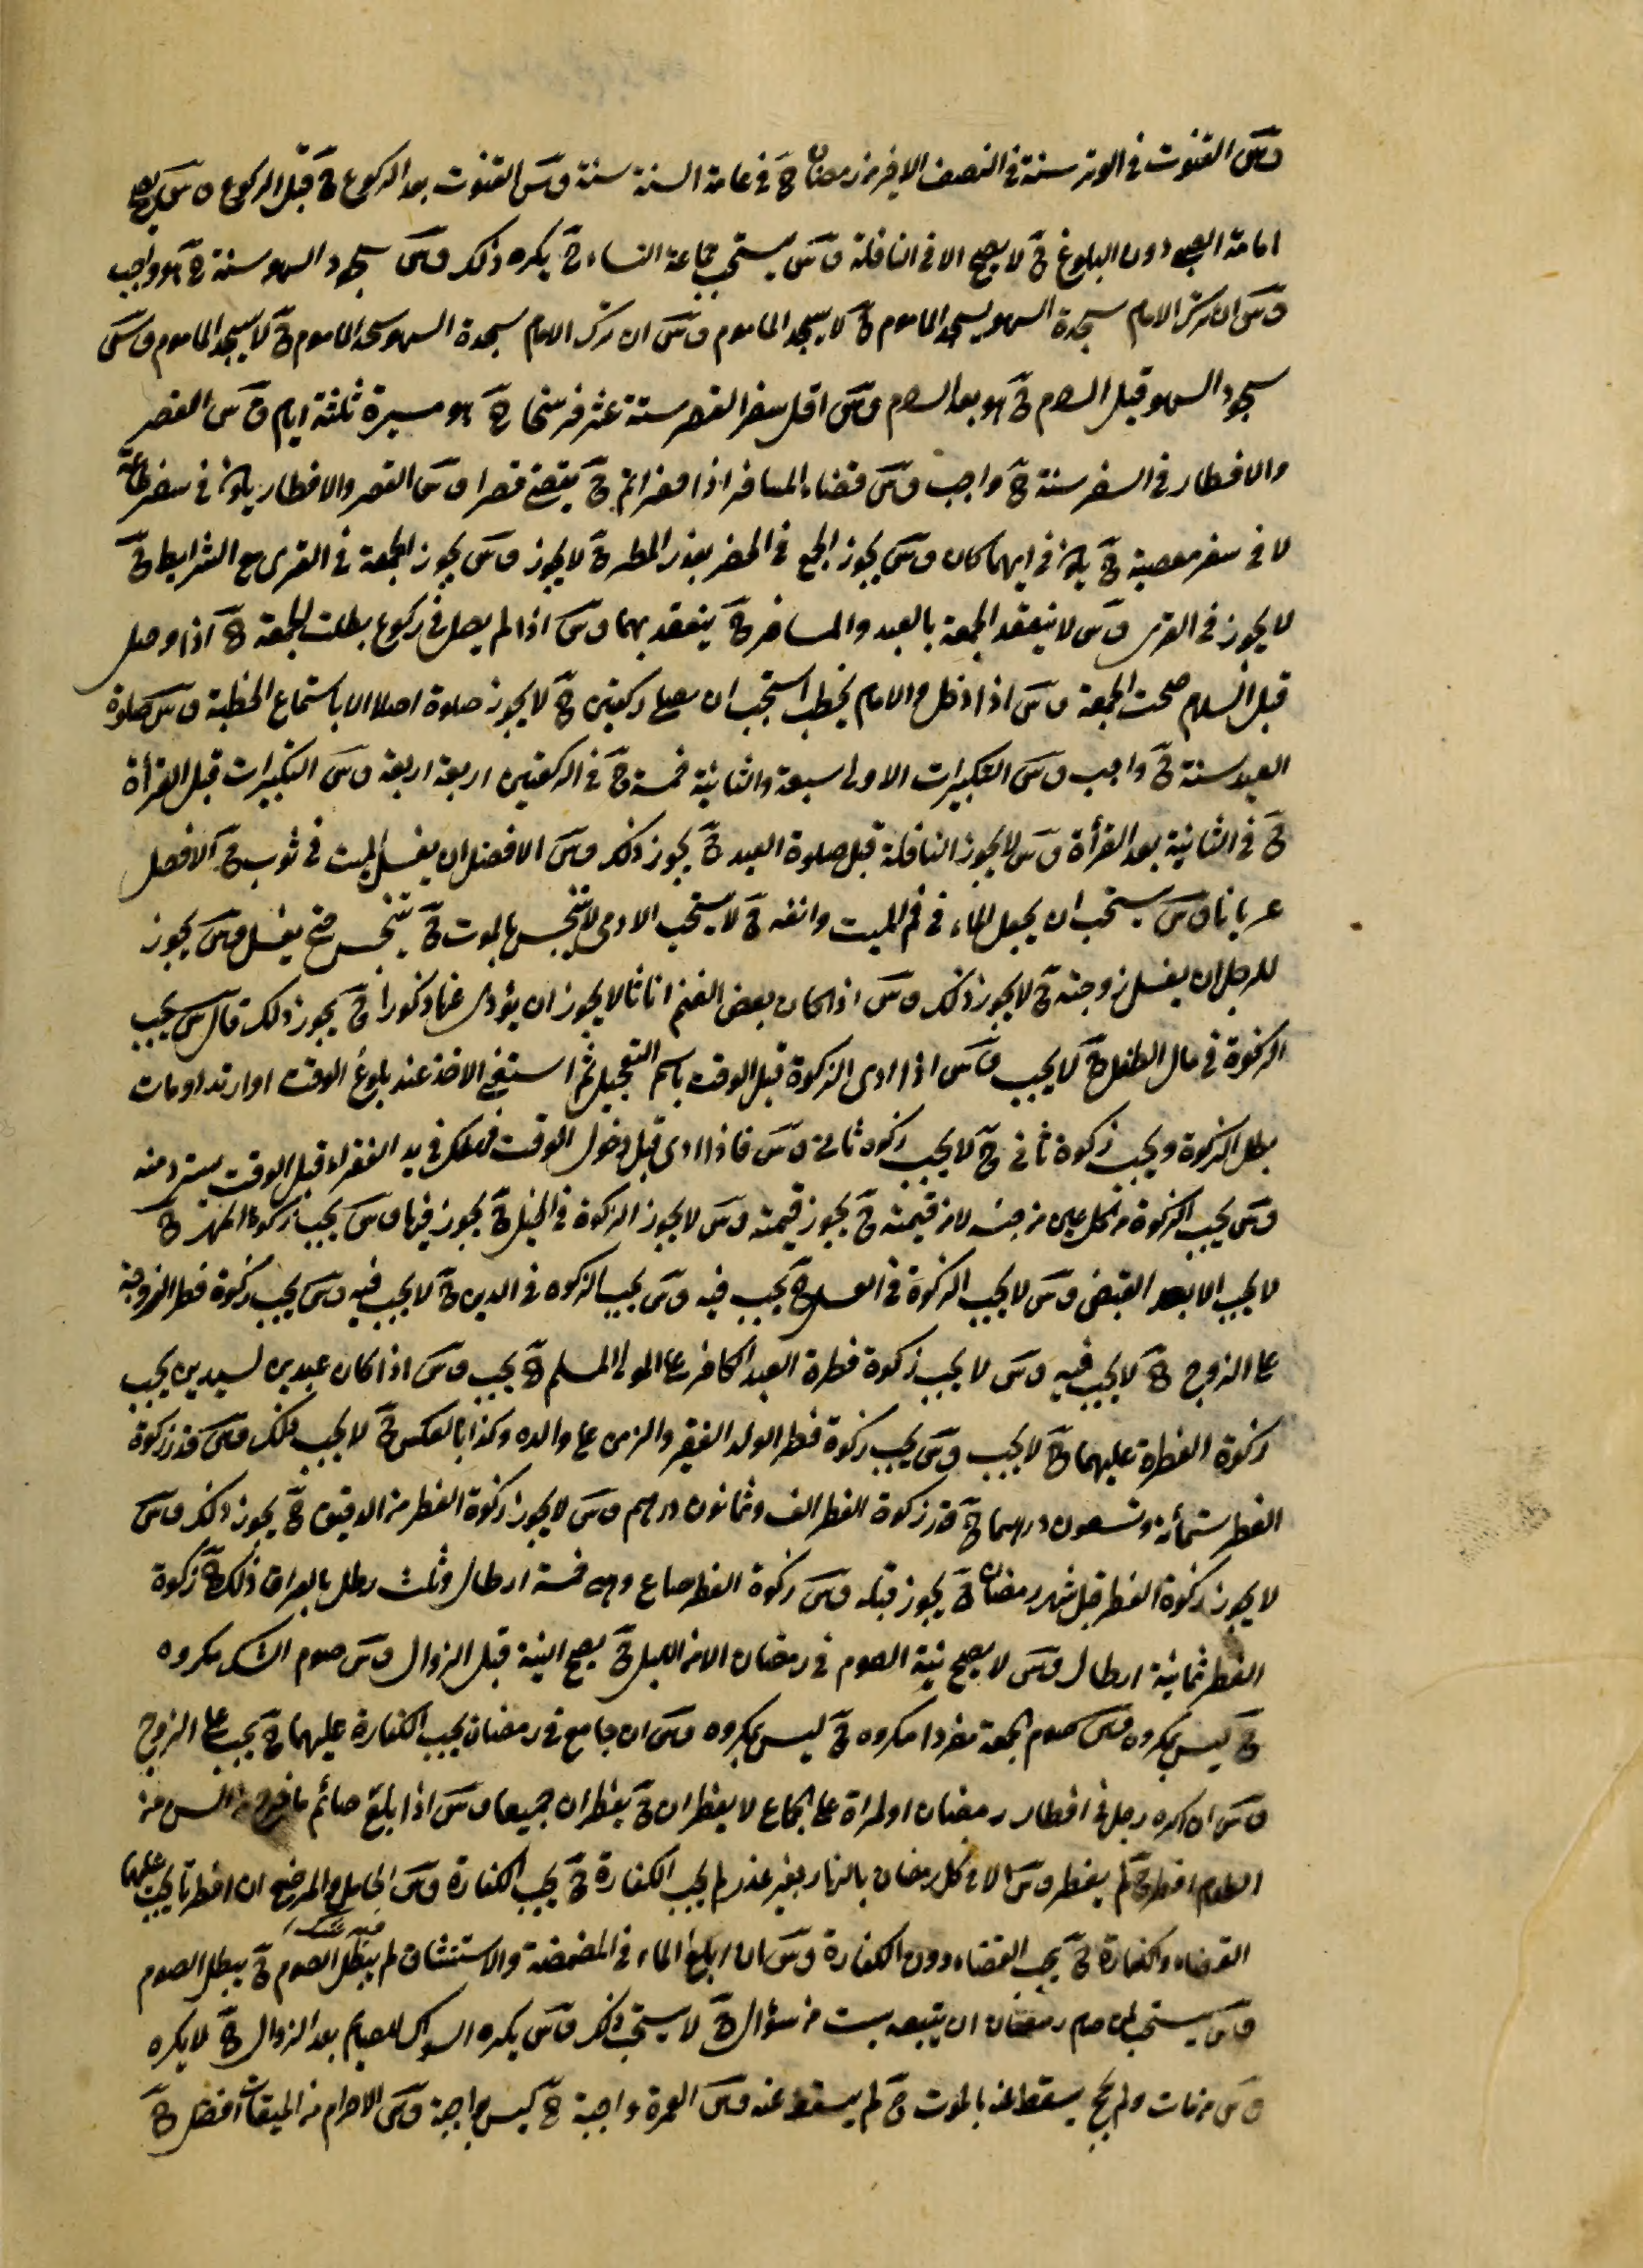 وش القنوت فى الوتر سنة فى النصف الاخير من رمضان ح فى عامة السنة سنة وش القنوت بعد الركوع ح قبل الركوع وش يصح
امامة الصبى دون البلوغ ح لا يصح الا فى النافلة وش يستحب جماعة النساء ح يكره ذلك وش سجود السهو سنة ح هو واجب
وش ان ترك الامام سجدة السهو يسجد الماموم ح لا يسجد الماموم وش ان ترك الامام سجدة السهو سجد الماموم ح لا يسجد الماموم وش
سجود السهو قبل السلام ح هو بعد السلام وش اقل سفر القصر ستة عشر فرسخا ح هو مسيرة ثلثة ايام وش القصر
والافطار فى السفر سنة ح واجب وش قضاء المسافر اذا حضر اتم ح يقضى قصرا وش القصر والافطار يلزم فى سفر طاعة
لا فى سفر معصية ح يلزم فى ايهما كان وش يجوز الجمع فى الحضر بعذر المطر ح لا يجوز وش يجوز الجمعة فى القرى مع الشرايط ح
لا يجوز فى القرى وش لا ينعقد الجمعة بالعبد والمسافر ح ينعقد بهما وش اذا لم يصل فى ركوع بطلت الجمعة ح اذا وصل
قبل السلام صحت الجمعة وش اذا دخل والامام يخطب استحب ان يصلى ركعتين ح لا يجوز صلوة اصلا الا باستماع الخطبة وش صلوة
العيد سنة ح واجب وش التكبيرات الاولى سبعة والثانية خمسة ح فى الركعتين اربعة اربعة وش التكبيرات قبل القرأة
ح فى الثانية بعد القرأة وش لا يجوز النافلة قبل صلوة العيد ح يجوز ذلك وش الافضل ان يغسل الميت فى ثوب ح الافضل
عريانا وش يستحب ان يجعل الماء فى فم الميت وانفه ح لا يستحب الادمى لا يتنجس بالموت ح يتنجس حتى يغسل وش يجوز
للرجل ان يغسل زوجته ح لا يجوز ذلك وش اذا كان بعض الغنم اناثا لا يجوز ان يؤدى غنما ذكورا ح يجوز ذلك قال ش يجب
الزكوة فى مال الطفل ح لا يجب وش اذا ادى الزكوة قبل الوقت باسم التعجيل ثم استغنى الاخذ عند بلوغ الوقت او ارتد او مات
بطل الزكوة ويجب زكوة ثانى ح لا يجب زكوه ثانى وش فاذا ادى قبل دخول الوقت فهلك فى يد الفقراء قبل الوقت يسترد منه
وش يجب الزكوة من كل عين من جنسه لا من قيمته ح يجوز قيمته وش لا يجوز الزكوة فى الخيل ح يجوز فيها وش يجب زكوة المهر ح
لا يجب الا بعد القبض وش لا يجب الزكوة فى العسل ح يجب فيه وش يجب الزكوه فى الدين ح لا يجب فيه وش يجب زكوة فطر الزوجة
على الزوج ح لا يجب فيه وش لا يجب زكوة فطرة العبد الكافر على المولى المسلم ح يجب وش اذا كان عبدين لسيدين يجب
زكوة الفطرة عليهما ح لا يجب وش يجب زكوة فطر الولد الفقير والزمن على والده وكذا بالعكس ح لا يجب ذلك وش قدر زكوة
الفطر ستمأة وتسعون درهما ح قدر زكوة الفطر الف وثمانون درهم وش لا يجوز زكوة الفطر من الدقيق ح يجوز ذلك وش
لا يجوز زكوة الفطر قبل شهر رمضان ح يجوز قبله وش زكوة الفطر صاع وهو خمسة ارطال وثلث رطل بالعراق ذلك ح زكوة
الفطر ثمانية ارطال وش لا يصح نية الصوم فى رمضان الا من الليل ح يصح النية قبل الزوال وش صوم الشك مكروه
ح ليس بمكروه وش صوم الجمعة مفردا مكروه ح ليس بمكروه وش ان جامع فى رمضان يجب الكفارة عليهما ح يجب على الزوج
وش ان اكره رجل فى افطار رمضان او المراة على الجماع لا يفطران ح يفطران جميعا وش اذا بلع صائم ما السن من
الطعام افطر ح لم يفطر وش الاكل رمضان بالنهار بغير عذر لم يجب الكفارة ح يجب الكفارة وش الحامل والمرضع ان افطرتا يجب عليهما
القضاء والكفارة ح يجب القضاء دون الكفارة وش ان ابلع الماء فى المضمضة والاستنشاق لم يبطل الصوم ح يبطل الصوم
وش يستحب لمن صام رمضان ان يتبعه بست من شوال ح لا يستحب ذلك وش يكره السواك للصايم بعد الزوال ح لا يكره
وش من مات ولم يحج يسقط عنه بالموت ح لم يسقط عنه وش العمرة واجبة ح ليس بواجبة وش الاحرام من الميقات افضل ح